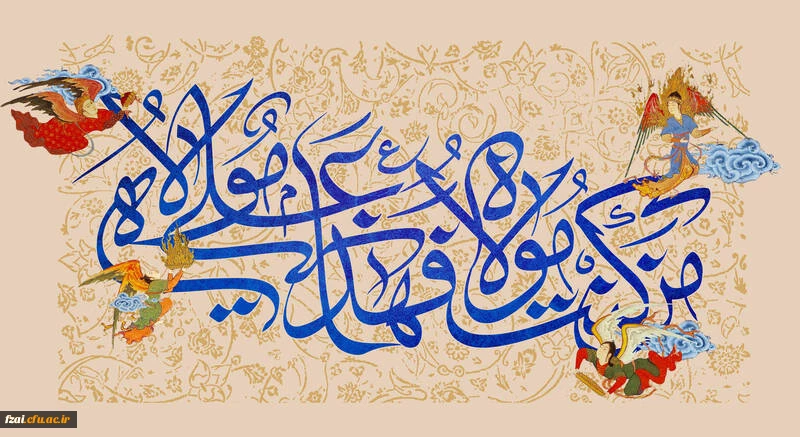 من كنت مولاه فهذا علي مولاه
fzai.cfu.ac.ir